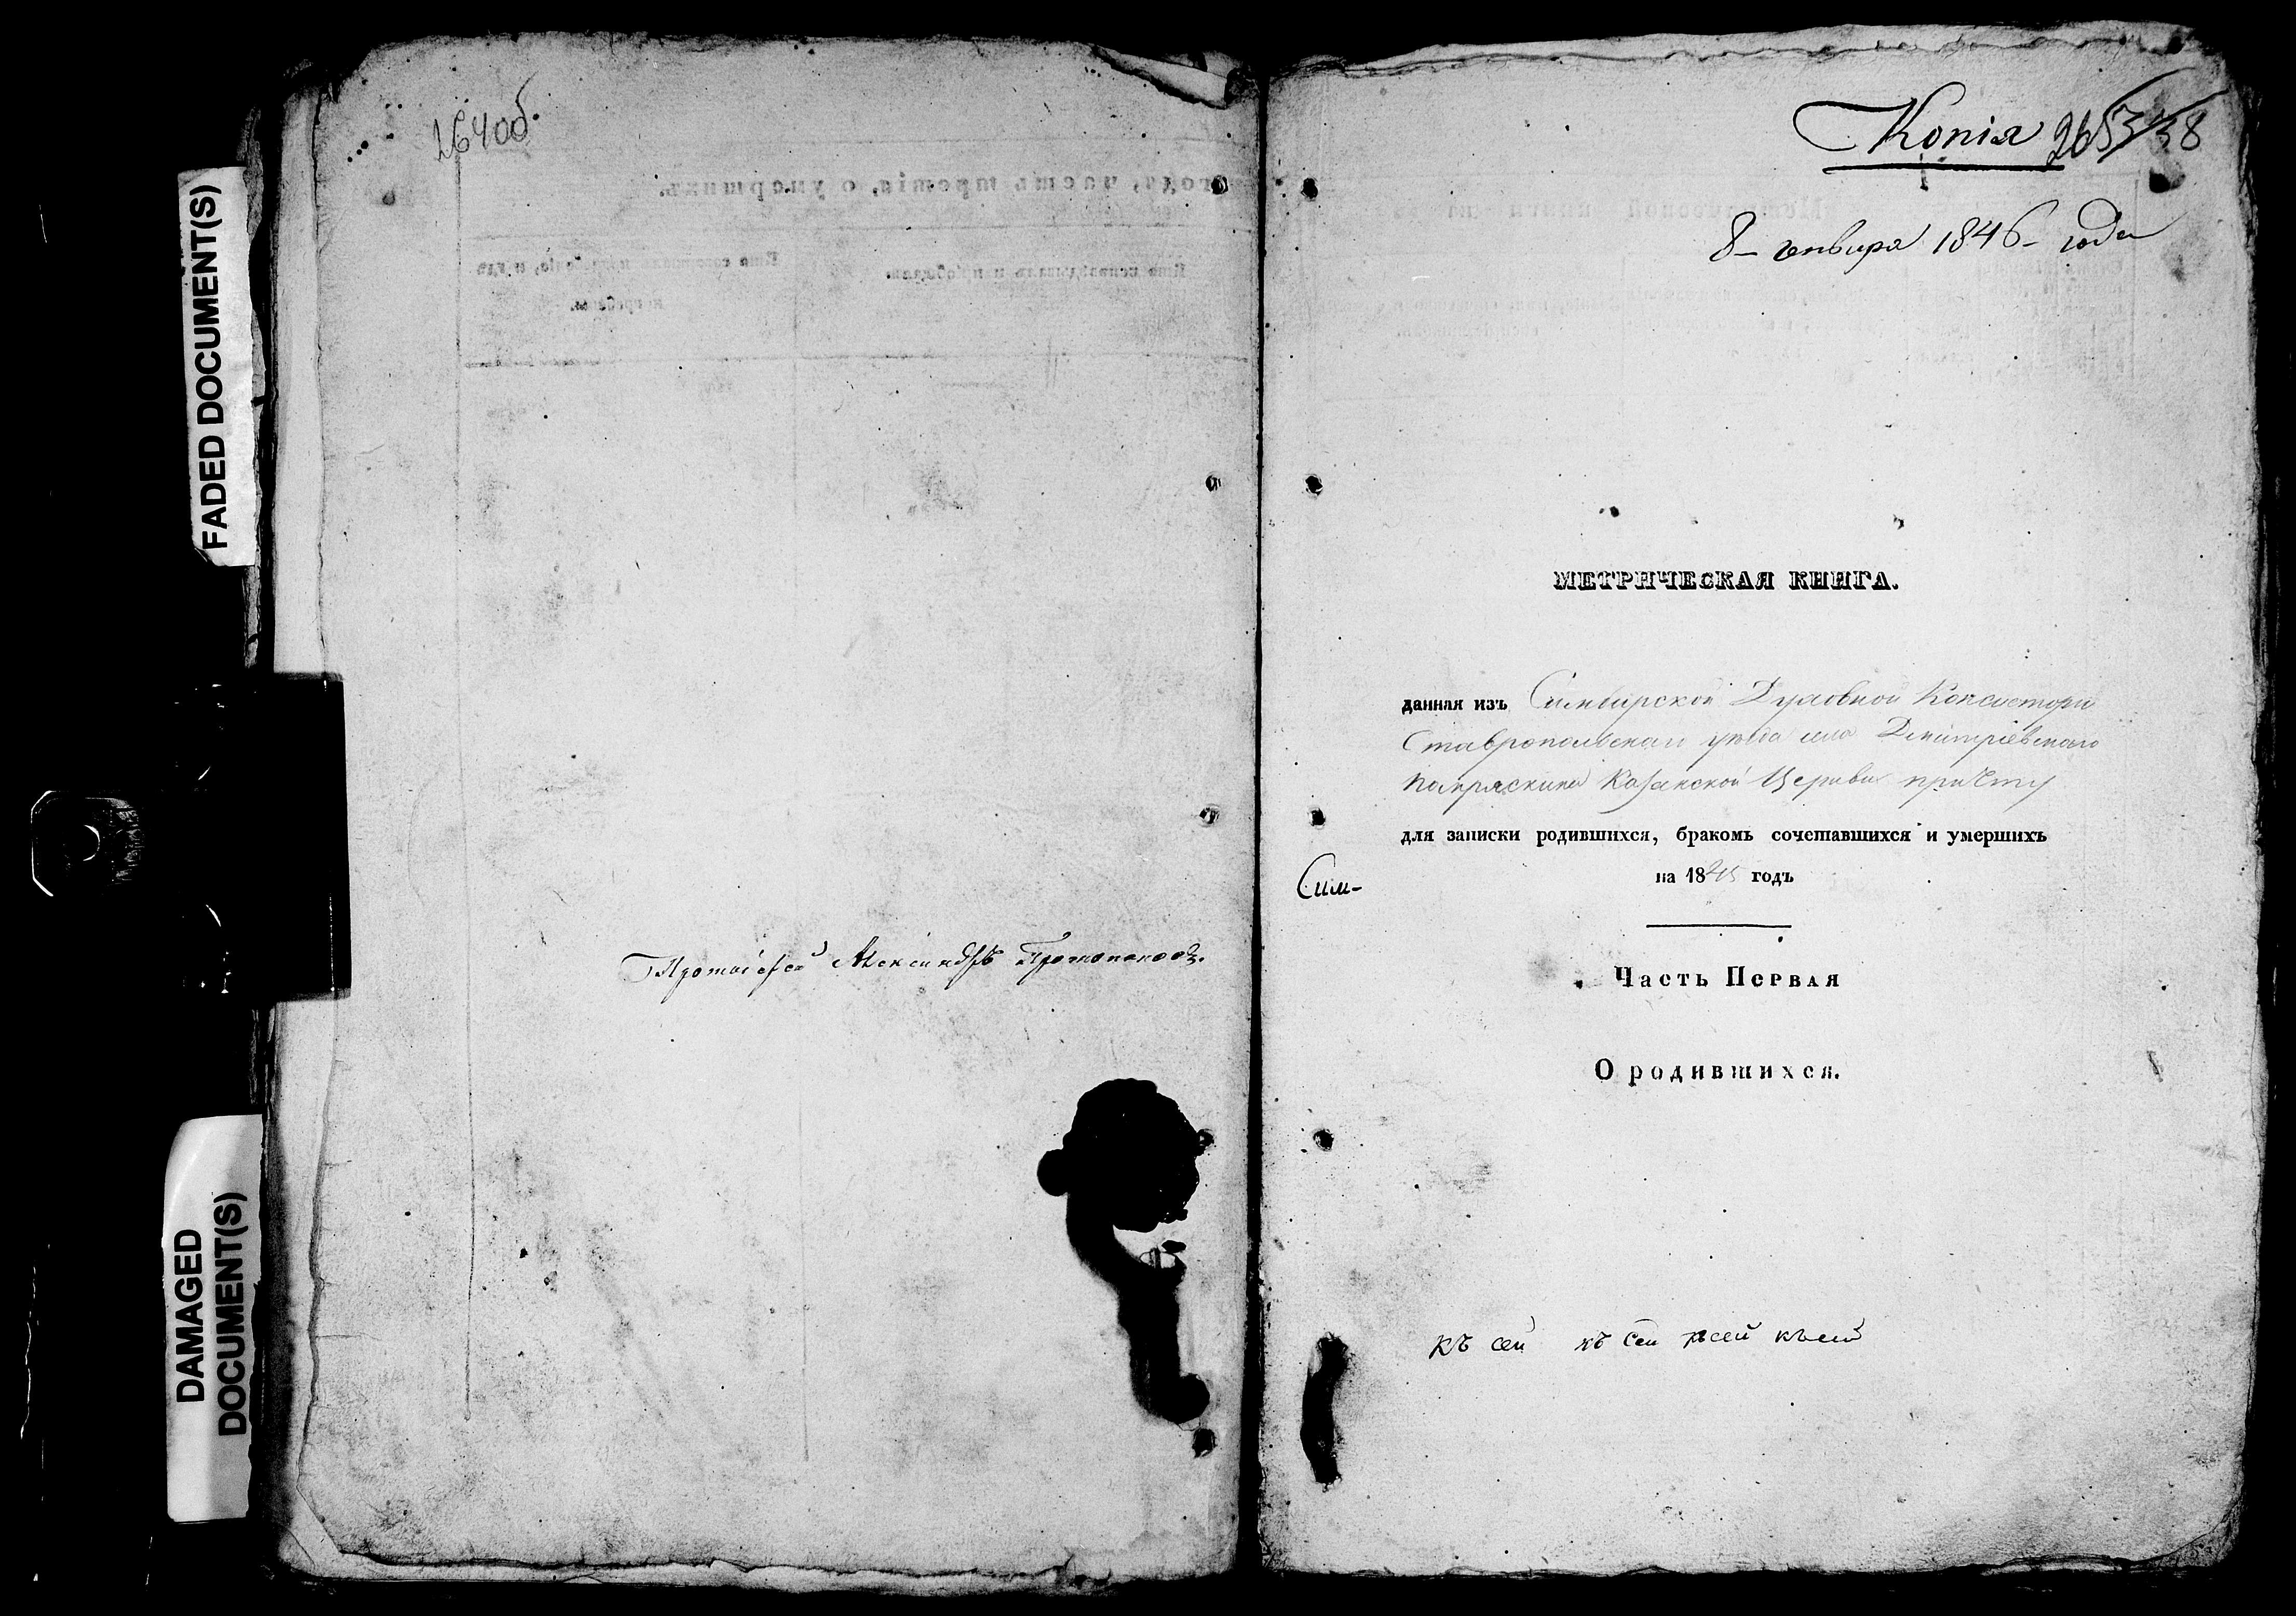 FADED DOCUMENT(S)
DAMAGED
DOCUMENT(S)
264об.
года, часть третія, о умершихъ.
Кто исповѣдывалъ и пріобщалъ.
Протоіерей Александръ Протопоповъ.
Копія 265
38
8 - генваря 1846 - года
МЕТРИЧЕСКАЯ КНИГА.
данная изъ Симбирской Духовной Консисторіи
Ставропольскаго уѣзда села Димитріевскаго
Казанской Церкви причту
для записки родившихся, бракомъ сочетавшихся и умершихъ
на 1845 годъ
Сим-
Часть Первая
О родившихся.
къ сей къ сей къ сей къ сей